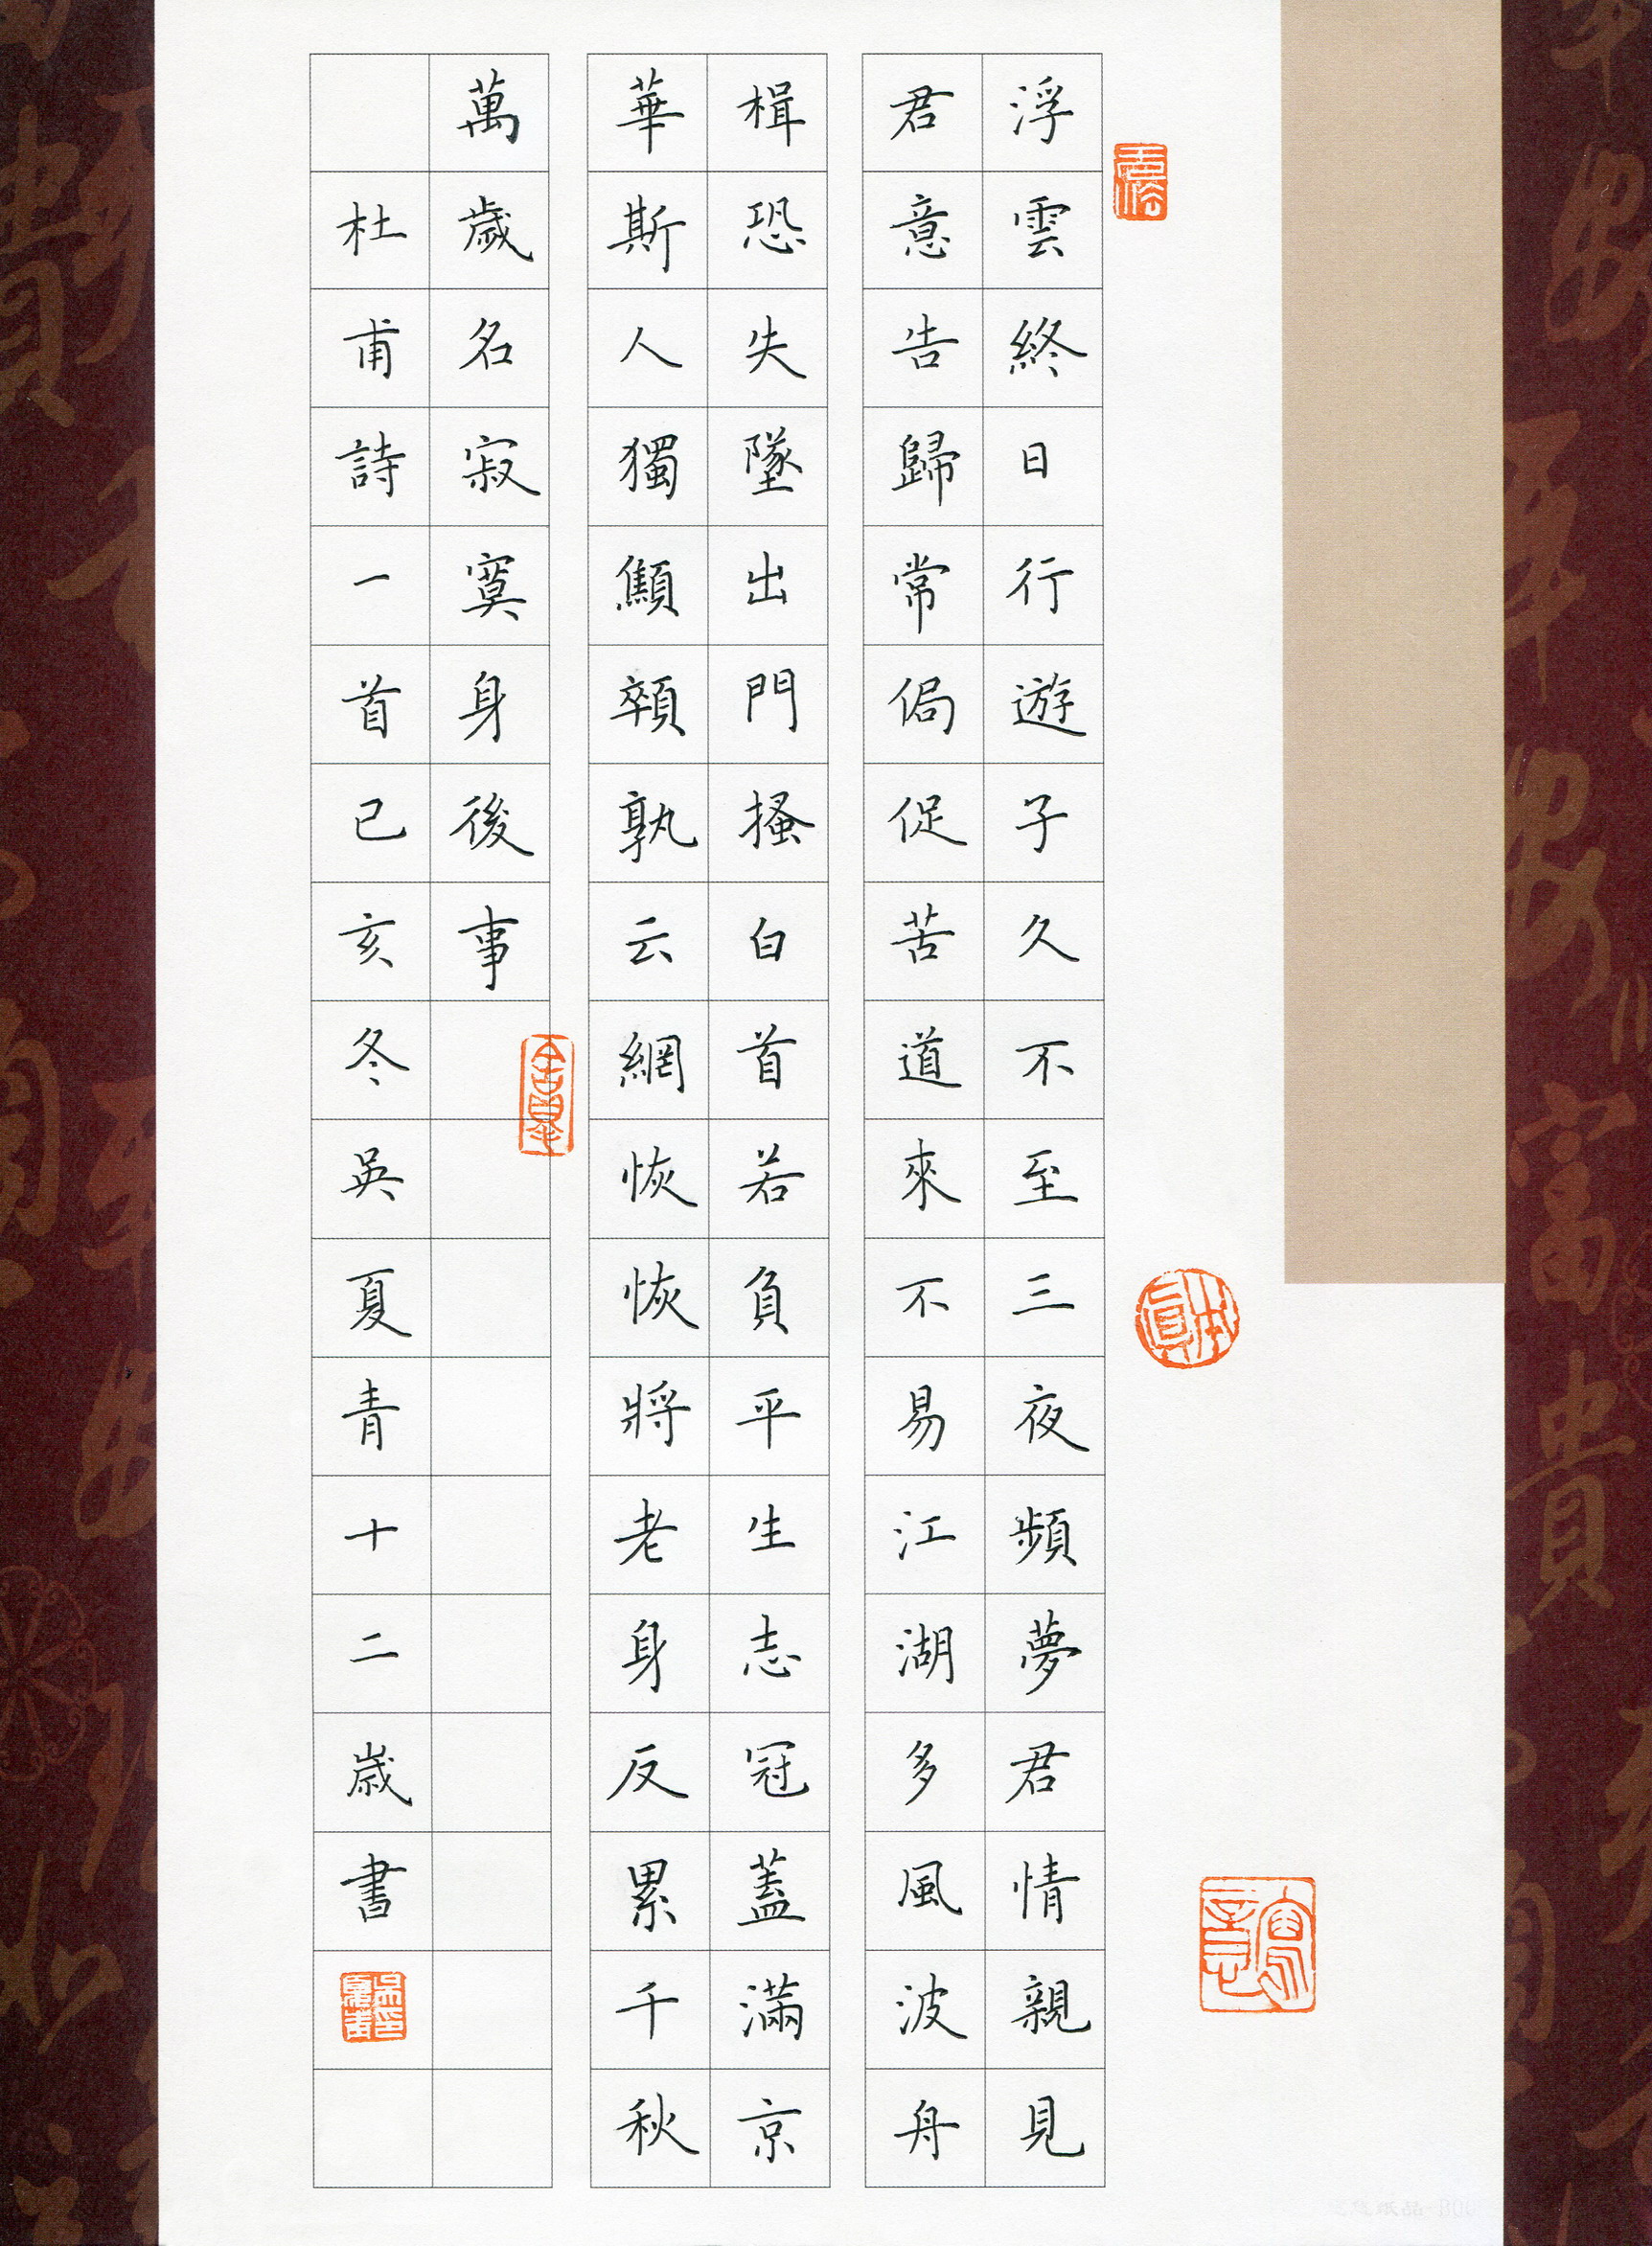 浮雲終日行遊子久不至三夜頻夢君情親見
君意告歸常侷促苦道來不易江湖多風波舟
楫恐失墜出門搔白首若負平生志冠蓋滿京
華斯人獨顦顇孰云網恢恢將老身反累千秋
萬歲名寂寞身後事
杜甫詩一首己亥冬吳夏青十二歲書